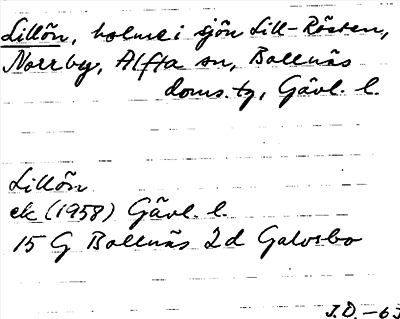 Lillön, holme i sjön Lill-Rösten,
Norrby, Alfta sn, Bollnäs
doms.tg, Gävl. l.
Lillön
ek (1958) Gävl. l.
15 G Bollnäs 2d Galvsbo
J.O. -63